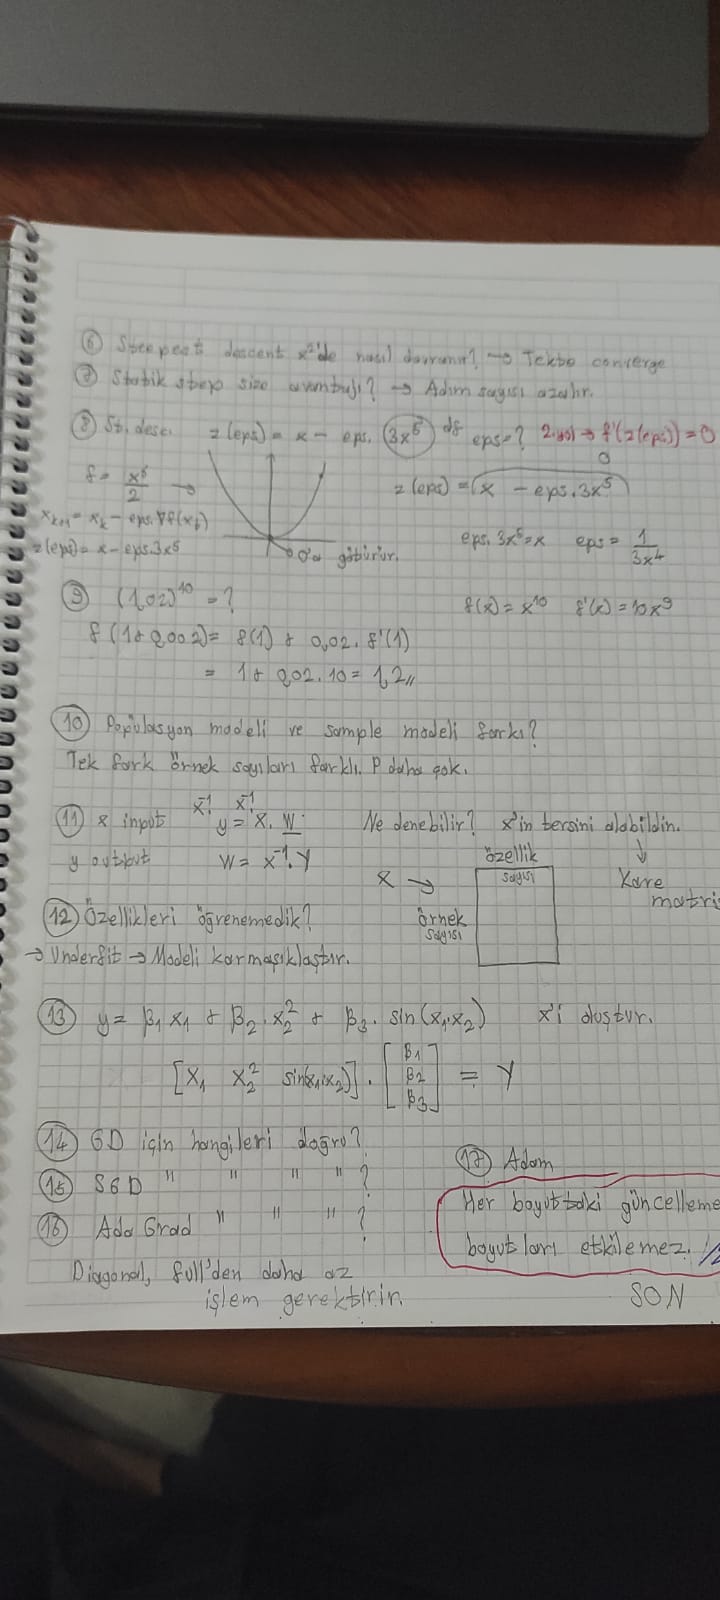 ⑥ Steepest descent x²'de nasıl davranır? → Tekte converge
⑦ Statik step size avantajı? → Adım sayısı azalır.
⑧ St. desc. z(eps) = x - eps. (3x⁵) df eps=? 2.yol → f'(z(eps)) = 0
f = x⁶/2 →
0
z(eps) = (x - eps.3x⁵)
xₖ₊₁ = xₖ - eps.∇f(xₖ)
z(eps) = x - eps.3x⁵
0'a götürür.
eps.3x⁵=x eps = 1/3x⁴
⑨ (1,02)¹⁰ = ?
f(x) = x¹⁰ f'(x) = 10x⁹
f(1+0,002) = f(1) + 0,02. f'(1)
= 1 + 0,02.10 = 1,2 //
⑩ Popülasyon modeli ve sample modeli farkı?
Tek fark örnek sayıları farklı. P daha çok.
⑪ x input x⁻¹. x⁻¹. y = X. W Ne denebilir? x'in tersini alabildin.
y output W = x⁻¹. Y
↓
Kare
X →
özellik
sayısı
örnek
sayısı
⑫ Özellikleri öğrenemedik?
→ Underfit → Modeli karmaşıklaştır.
⑬ y = β₁ x₁ + β₂. x₂² + β₃. sin(x₁.x₂) x'i oluştur.
[x₁ x₂² sin(x₁.x₂)] . [β₁ β₂ β₃] = Y
⑭ GD için hangileri doğru?
⑮ SGD " " " " ?
⑯ Ada Grad " " " ?
Diagonal, full'den daha az
işlem gerektirir.
⑰ Adam
Her boyuttaki güncelleme
boyutları etkilemez.
SON